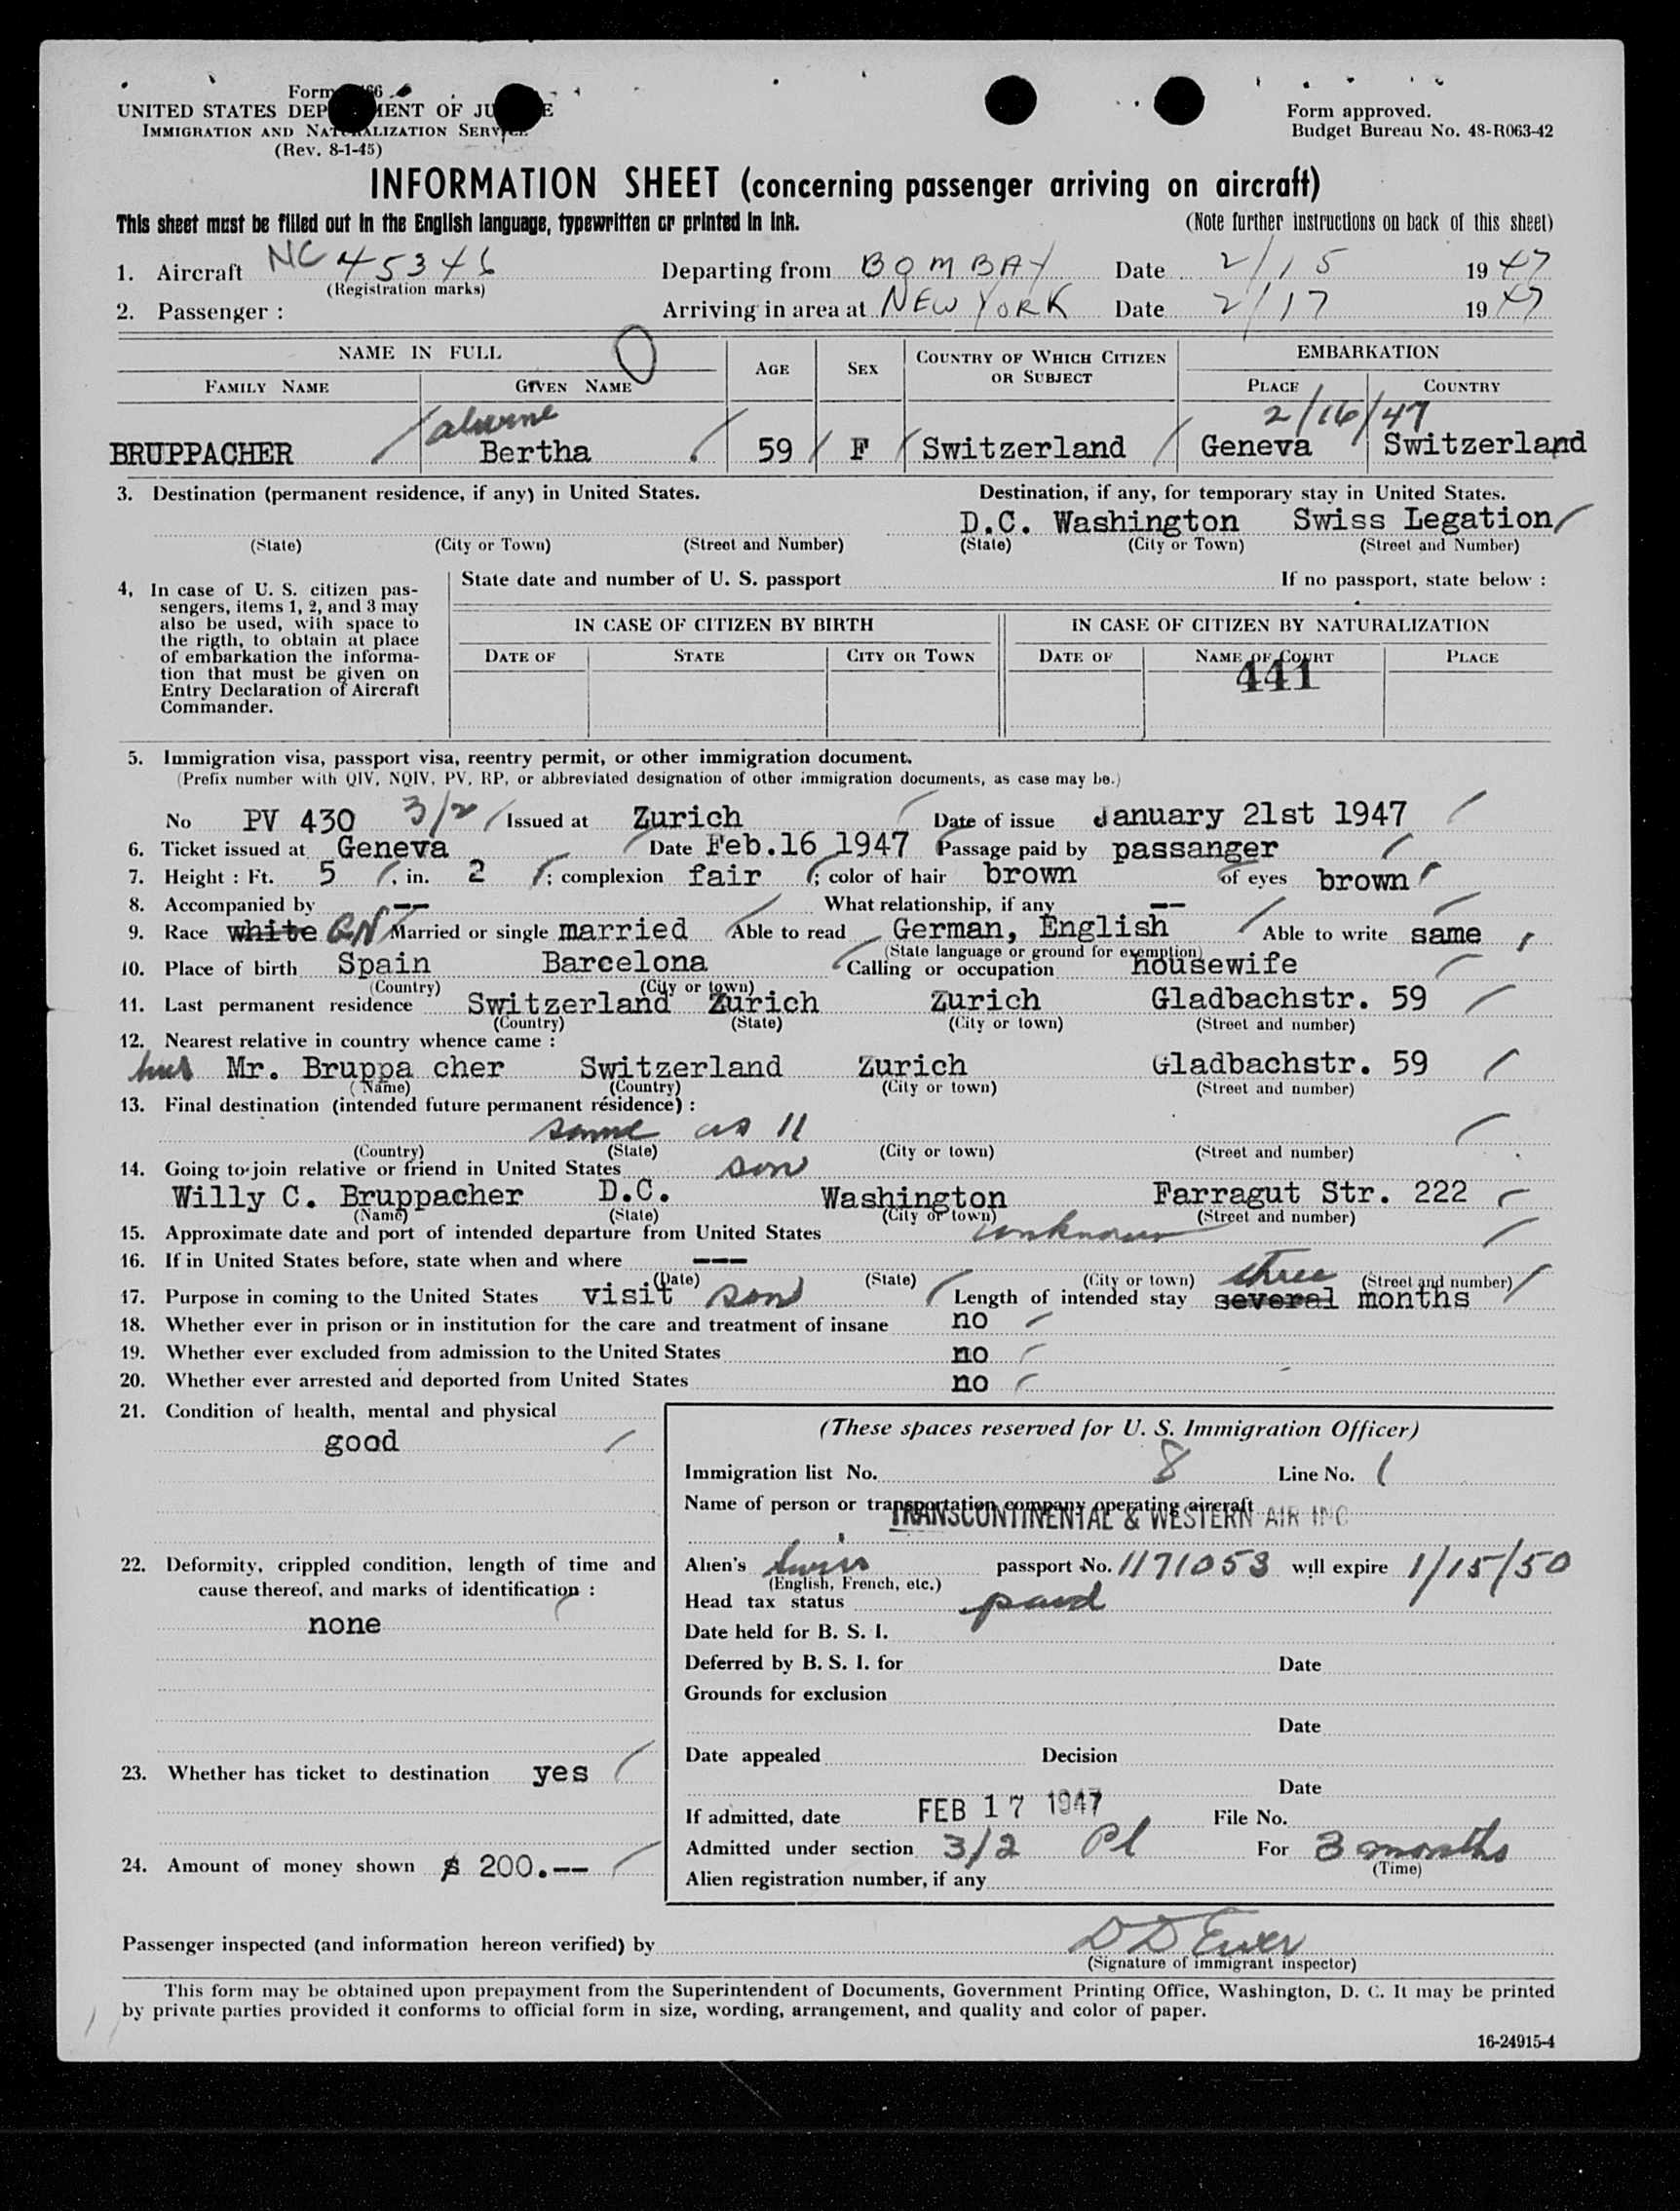 Form
UNITED STATES DEP MENT OF JU E
IMMIGRATION AND NATURALIZATION SERVICE
(Rev. 8-1-45)
Form approved.
Budget Bureau No. 48-R063-42
INFORMATION SHEET (concerning passenger arriving on aircraft)
This sheet must be filled out in the English language, typewritten or printed in ink.
(Note further instructions on back of this sheet)
1. Aircraft NC 45346 Departing from BOMBAY Date 2/15 1947
(Registration marks)
2. Passenger : Arriving in area at NEW YORK Date 2/17 1947
NAME IN FULL AGE SEX COUNTRY OF WHICH CITIZEN OR SUBJECT EMBARKATION
FAMILY NAME GIVEN NAME PLACE COUNTRY
2/16/47
BRUPPACHER Bertha 59 F Switzerland Geneva Switzerland
3. Destination (permanent residence, if any) in United States. Destination, if any, for temporary stay in United States.
D.C. Washington Swiss Legation
(State) (City or Town) (Street and Number) (State) (City or Town) (Street and Number)
4, In case of U. S. citizen pas-
sengers, items 1, 2, and 3 may
also be used, with space to
the rigth, to obtain at place
of embarkation the informa-
tion that must be given on
Entry Declaration of Aircraft
Commander.
State date and number of U. S. passport If no passport, state below :
IN CASE OF CITIZEN BY BIRTH IN CASE OF CITIZEN BY NATURALIZATION
DATE OF STATE CITY OR TOWN DATE OF NAME OF COURT PLACE
441
5. Immigration visa, passport visa, reentry permit, or other immigration document.
(Prefix number with QIV, NQIV, PV, RP, or abbreviated designation of other immigration documents, as case may be.)
No PV 430 3/2 Issued at Zurich Date of issue January 21st 1947
6. Ticket issued at Geneva Date Feb.16 1947 Passage paid by passanger
7. Height : Ft. 5 , in. 2 ; complexion fair ; color of hair brown of eyes brown
8. Accompanied by -- What relationship, if any --
9. Race white Married or single married Able to read German, English Able to write same
(State language or ground for exemption)
10. Place of birth Spain Barcelona Calling or occupation housewife
(Country) (City or town)
11. Last permanent residence Switzerland Zurich Zurich Gladbachstr. 59
(Country) (State) (City or town) (Street and number)
12. Nearest relative in country whence came :
hus Mr. Bruppa cher Switzerland Zurich Gladbachstr. 59
(Name) (Country) (City or town) (Street and number)
13. Final destination (intended future permanent résidence) :
same as 11
(Country) (State) (City or town) (Street and number)
14. Going to join relative or friend in United States son
Willy C. Bruppacher D.C. Washington Farragut Str. 222
(Name) (State) (City or town) (Street and number)
15. Approximate date and port of intended departure from United States unknown
16. If in United States before, state when and where ---
(Date) (State) (City or town) (Street and number)
17. Purpose in coming to the United States visit son Length of intended stay several three months
18. Whether ever in prison or in institution for the care and treatment of insane no
19. Whether ever excluded from admission to the United States no
20. Whether ever arrested and deported from United States no
21. Condition of health, mental and physical
good
22. Deformity, crippled condition, length of time and
cause thereof, and marks of identification :
none
23. Whether has ticket to destination yes
24. Amount of money shown $ 200.--
(These spaces reserved for U. S. Immigration Officer)
Immigration list No. 8 Line No. 1
Name of person or transportation company operating aircraft
TRANSCONTINENTAL & WESTERN AIR INC
Alien's Swiss passport No. 1171053 will expire 1/15/50
(English, French, etc.)
Head tax status paid
Date held for B. S. I.
Deferred by B. S. I. for Date
Grounds for exclusion
Date
Date appealed Decision
Date
If admitted, date FEB 17 1947 File No.
Admitted under section 3/2 Pl For 3 months
(Time)
Alien registration number, if any
Passenger inspected (and information hereon verified) by D D Ewer
(Signature of immigrant inspector)
This form may be obtained upon prepayment from the Superintendent of Documents, Government Printing Office, Washington, D. C. It may be printed
by private parties provided it conforms to official form in size, wording, arrangement, and quality and color of paper.
16-24915-4